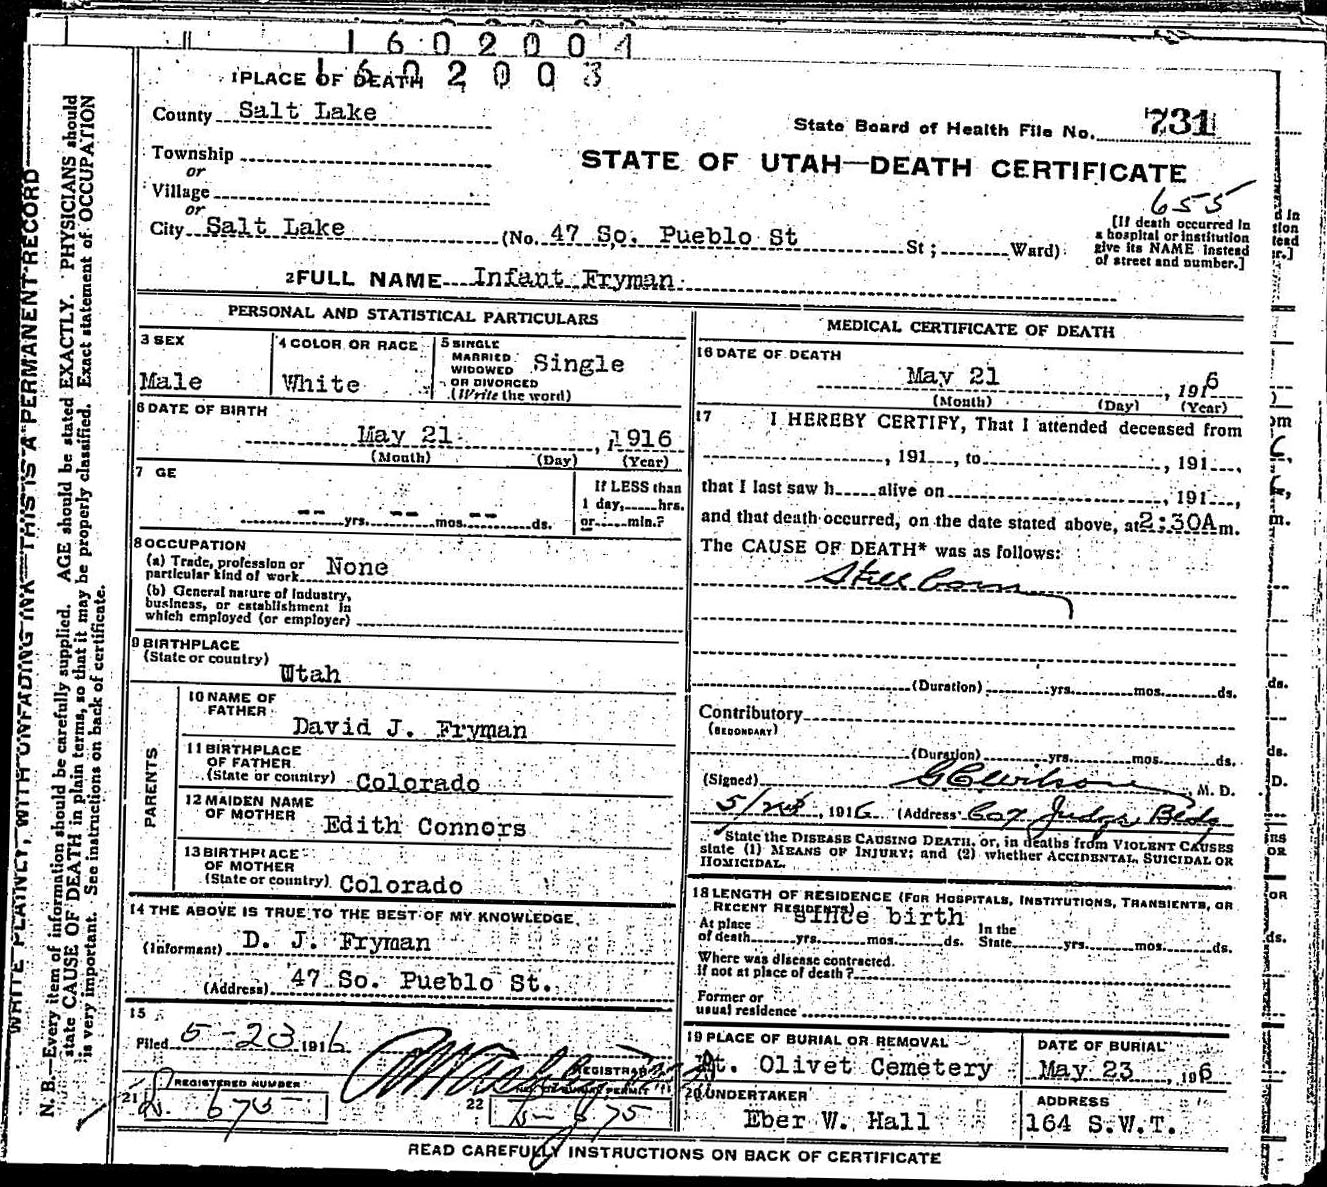 1602004
1602003
1 PLACE OF DEATH
County Salt Lake
State Board of Health File No. 731
Township
or
Village
or
City Salt Lake (No. 47 So. Pueblo St St; Ward)
STATE OF UTAH—DEATH CERTIFICATE
655
[If death occurred in
a hospital or institution
give its NAME instead
of street and number.]
2 FULL NAME Infant Fryman
PERSONAL AND STATISTICAL PARTICULARS
3 SEX
Male
4 COLOR OR RACE
White
5 SINGLE
MARRIED
WIDOWED
OR DIVORCED
(Write the word)
Single
6 DATE OF BIRTH
May 21, 1916
(Month) (Day) (Year)
7 GE
-- yrs. -- mos. -- ds.
If LESS than
1 day, hrs.
or min.?
8 OCCUPATION
(a) Trade, profession or
particular kind of work None
(b) General nature of industry,
business, or establishment in
which employed (or employer)
9 BIRTHPLACE
(State or country)
Utah
PARENTS
10 NAME OF
FATHER
David J. Fryman
11 BIRTHPLACE
OF FATHER
(State or country) Colorado
12 MAIDEN NAME
OF MOTHER Edith Connors
13 BIRTHPLACE
OF MOTHER
(State or country) Colorado
14 THE ABOVE IS TRUE TO THE BEST OF MY KNOWLEDGE
(Informant) D. J. Fryman
(Address) 47 So. Pueblo St.
15
Filed 5-23 1916
REGISTRAR
21 REGISTERED NUMBER
675
22
MEDICAL CERTIFICATE OF DEATH
16 DATE OF DEATH
May 21, 1916
(Month) (Day) (Year)
17 I HEREBY CERTIFY, That I attended deceased from
, 191 , to , 191 ,
that I last saw h alive on , 191 ,
and that death occurred, on the date stated above, at 2:30A m.
The CAUSE OF DEATH* was as follows:
Still Born
(Duration) yrs. mos. ds.
Contributory
(SECONDARY)
(Duration) yrs. mos. ds.
(Signed) M. D.
5/23, 1916 (Address) 607 Judge Bldg
State the DISEASE CAUSING DEATH, or, in deaths from VIOLENT CAUSES
state (1) MEANS OF INJURY; and (2) whether ACCIDENTAL, SUICIDAL OR
HOMICIDAL.
18 LENGTH OF RESIDENCE (FOR HOSPITALS, INSTITUTIONS, TRANSIENTS, OR
RECENT RESIDENTS)
since birth
At place
of death yrs. mos. ds.
In the
State yrs. mos. ds.
Where was disease contracted
if not at place of death?
Former or
usual residence
19 PLACE OF BURIAL OR REMOVAL
Mt. Olivet Cemetery
DATE OF BURIAL
May 23, 1916
20 UNDERTAKER
Eber W. Hall
ADDRESS
164 S.W.T.
READ CAREFULLY INSTRUCTIONS ON BACK OF CERTIFICATE
WRITE PLAINLY, WITH UNFADING INK—THIS IS A PERMANENT RECORD
N. B.—Every item of information should be carefully supplied. AGE should be stated EXACTLY. PHYSICIANS should
state CAUSE OF DEATH in plain terms, so that it may be properly classified. Exact statement of OCCUPATION
is very important. See instructions on back of certificate.